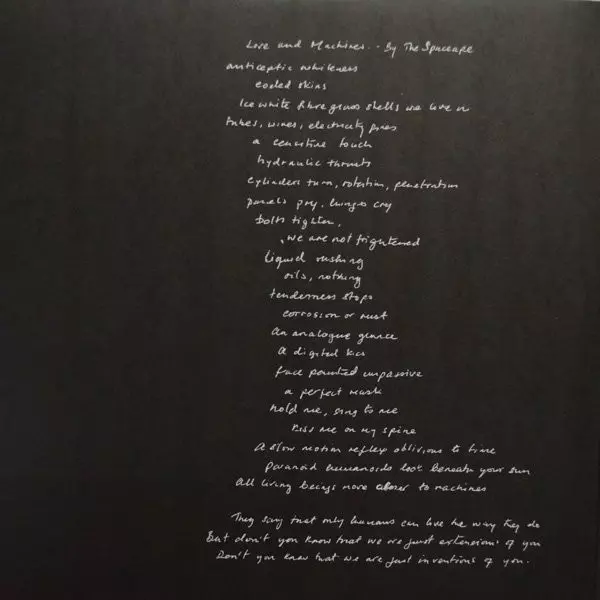 Love and Machines.. By The Spaceape
anticeptic whiteness
cooled skins
Ice white fibre glass shells we live in
tubes, wires, electricity fires
a sensitive touch
hydraulic thrusts
cylinders turn, rotation, penetration
panels pry, hinges cry
bolts tighten,
we are not frightened
Liquid rushing
oils, nothing
tenderness stops
corrosion or rust
An analogue glance
A digital kiss
face painted impassive
a perfect mask
hold me, sing to me
kiss me on my spine
A slow motion reflex oblivious to time
Paranoid humanoids look beneath your sun
All living beings move closer to machines
They say that only humans can love the way they do
But don't you know that we are just extensions of you
Don't you know that we are just inventions of you.